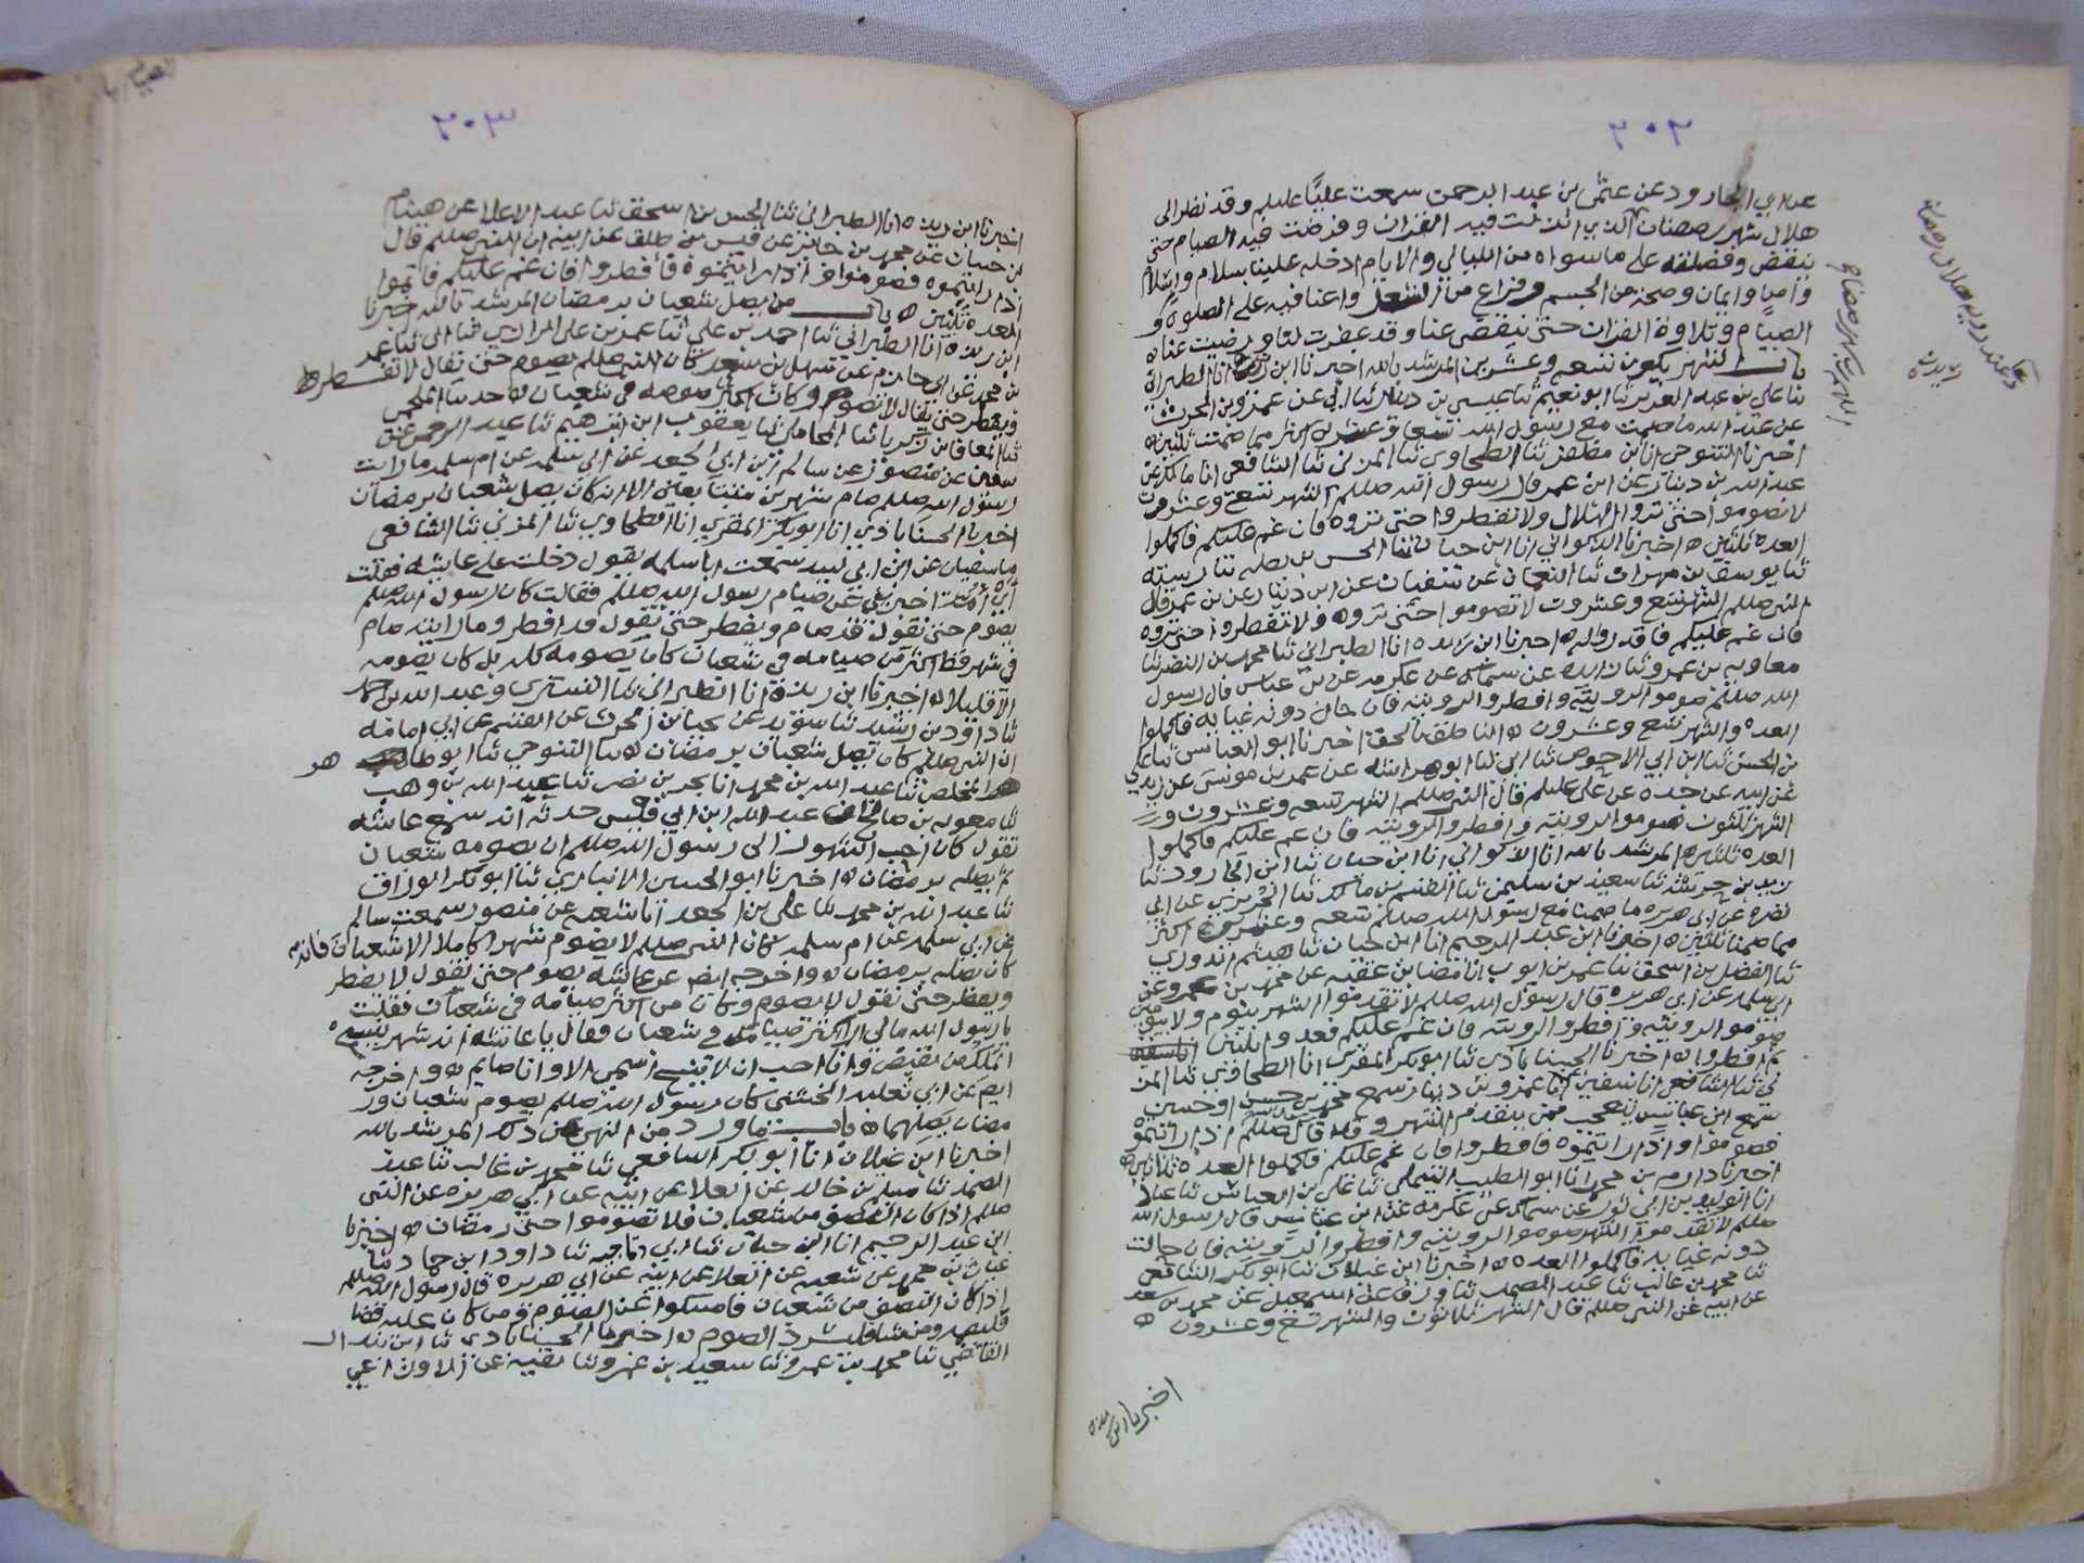 ٢٠٢
عن ابي الجارود عن عثمن بن عبد الرحمن سمعت عليا عليلم وقد نظر الى
هلال شهر رمضان الذي انزلت فيه القران وفرضت فيه الصيام حتى
ينقض وفضلته على ما سواه من الليالي والايام ادخله علينا بسلام واسلام
وامن وايمان وصحة من الجسم وفراغ من الشغل واعنا فيه على الصلوة و
الصيام وتلاوة القران حتى ينقضى عنا وقد غفرت لنا ورضيت عنا ه
باب الشهر يكون تسعه وعشرين المرشد بالله اخبرنا ابن ريذه انا الطبراني
ثنا علي بن عبد العزيز ثنا ابو نعيم ثنا عيسى بن دينار ثنا ابي عن عمرو بن الحرث
عن عبد الله ما صمت مع رسول الله تسعا وعشرين اكثر مما صمت ثلثين ه
اخبرنا التنوخي انا ابن مظفر ثنا الطحاوي ثنا المزني ثنا الشافعي انا مالك عن
عبد الله بن دينار عن ابن عمر قال رسول الله صللم الشهر تسع وعشرون
لا تصوموا حتى تروا الهلال ولا تفطروا حتى تروه فان غم عليكم فاكملوا
العده ثلثين ه اخبرنا الذكواني انا ابن حيان ثنا الحسن بن
ثنا يوسف بن مهران ثنا النعمان عن سفيان عن ابن دينار عن بن عمر قال
النبي صللم الشهر تسع وعشرون لا تصوموا حتى تروه ولا تفطروا حتى تروه
فان غم عليكم فاقدروا له ه اخبرنا ابن ريده انا الطبراني ثنا محمد بن النضر ثنا
معاويه بن عمرو ثنا زايده عن سماك عن عكرمه عن بن عباس قال رسول
الله صللم صوموا لرويته وافطروا لرويته فان حال دونه غيابه فاكملوا
العده والشهر تسع وعشرون ه الناطق بالحق اخبرنا ابو العباس ثنا علي
بن الحسن ثنا ابن ابي الاحوص ثنا ابي ثنا ابو عن عمر بن موسى عن زيد بن علي
عن ابيه عن جده عن علي عليلم قال النبي صللم الشهر تسعه وعشرون و
الشهر ثلثون صوموا لرويته وافطروا لرويته فان غم عليكم فاكملوا
العده ثلثين ه المرشد بالله انا الذكواني انا ابن حيان ثنا ابن الجارود ثنا
ثنا سعيد بن سليمن ثنا القسم بن مالك ثنا الجريري عن ابي
نضره عن ابي هريره ما صمنا مع رسول الله صللم تسعه وعشرين اكثر
مما صمنا ثلثين ه اخبرنا ابن عبد الرحيم انا ابن حيان ثنا هيثم الدوري
ثنا الفضل بن اسحق ثنا عمر بن ايوب عن محمد بن عمرو عن
ابي سلمه عن ابي هريره قال رسول الله صللم لا تقدموا الشهر بيوم ولا بيومين
صوموا لرويته وافطروا لرويته فان غم عليكم فعدوا ثلثين
ثم افطروا ه اخبرنا الحسناباذي ثنا ابو بكر المقري انا الطحاوي ثنا المز
ني ثنا الشافعي انا سفين انا عمرو بن دينار سمع محمد بن حسن او حسين
سمع ابن عباس يتعجب ممن يتقدم الشهر وقد قال صللم اذا رايتموه
فصوموا واذا رايتموه فافطروا فان غم عليكم فاكملوا العده ثلاثين ه
اخبرنا دارم بن محمد انا ابو الطيب التيملي ثنا علي بن العباس ثنا عباد
انا الوليد بن ابي ثور عن سماك عن عكرمه عن ابن عباس قال رسول الله
صللم لا تقدموا الشهر صوموا لرويته وافطروا لرويته فان حالت
دونه غيابه فاكملوا العده ه اخبرنا ابن غيلان ثنا ابو بكر الشافعي
ثنا محمد بن غالب ثنا عبد الصمد ثنا عن اسمعيل عن محمد بن سعد
عن ابيه عن النبي صللم قال الشهر ثلاثون والشهر تسع وعشرون ه
اخبرنا ابن ريذه
٢٠٣
اخبرنا ابن ريذه انا الطبراني ثنا الحسن بن اسحق ثنا عبد الاعلا عن هيثام
بن حسان عن محمد بن جابر عن قيس بن طلق عن ابيه ان النبي صللم قال
اذا رايتموه فصوموا واذا رايتموه فافطروا فان غم عليكم فاتموا
العده ثلثين ه باب من يصل شعبان برمضان المرشد بالله اخبرنا
ابن ريذه انا الطبراني ثنا احمد بن علي ثنا عمر بن علي ثنا ابي ثنا عمر
بن محمد عن ابي حازم عن سهل بن سعد كان النبي صللم يصوم حتى يقال لا يفطر
ويفطر حتى يقال لا يصوم وكان اكثر صومه في شعبان ه
ثنا المعافا بن زكريا ثنا المحاملي ثنا يعقوب ابن ابرهيم ثنا عبد الرحمن عن
سفين عن منصور عن سالم ابن ابي الجعد عن ابي سلمه عن ام سلمه ما رايت
رسول الله صللم صام شهرين متتابعين الا ان كان يصل شعبان برمضان
اخبرنا الحسناباذي انا ابو بكر المقري انا الطحاوي ثنا المزني ثنا الشافعي
ثنا سفيان عن ابن ابي لبيد سمعت ابا سلمه يقول دخلت على عايشه فقلت
اخبريني عن صيام رسول الله صللم فقالت كان رسول الله صللم
يصوم حتى نقول قد صام ويفطر حتى نقول قد افطر وما رايته صام
في شهر قط اكثر من صيامه في شعبان كان يصومه كله بل كان يصومه
الا قليلا ه اخبرنا ابن ريذه انا الطبراني ثنا التستري وعبد الله بن احمد
ثنا داود بن رشيد ثنا سويد عن يحيا بن الحرث عن القسم عن ابي امامه
ان النبي صللم كان يصل شعبان برمضان ه ثنا التنوخي ثنا ابو طاهر
المخلص ثنا عبد الله بن محمد انا بحر بن نصر ثنا عبد الله بن وهب
ثنا معويه بن صالح ان عبد الله ابن ابي قيس حدثه انه سمع عايشه
تقول كان احب الشهور الى رسول الله صللم ان يصومه شعبان
ثم يصله برمضان ه اخبرنا ابو الحسين الانباري ثنا ابو بكر الوراق
ثنا عبد الله بن محمد ثنا علي بن الجعد انا شعبه عن منصور سمعت سالم
عن ابي سلمه عن ام سلمه كان النبي صللم لا يصوم شهرا كاملا الا شعبان فانه
كان يصله برمضان ه واخرجه ايض عن عايشه يصوم حتى نقول لا يفطر
ويفطر حتى نقول لا يصوم وكان من اكثر صيامه في شعبان فقلت
يا رسول الله ما لي ارا اكثر صيامك في شعبان فقال يا عايشه انه شهر ينسخ
لملك من يقبض وانا احب ان لا ينسخ اسمي الا وانا صايم ه واخرجه
ايض عن ابي ثعلبه الخشني كان رسول الله صللم يصوم شعبان ور
مضان يصلهما ه باب ما ورد من النهي عن ذلك المرشد بالله
اخبرنا ابن غيلان انا ابو بكر الشافعي ثنا محمد بن غالب ثنا عبد
الصمد ثنا مسلم بن خالد عن العلا عن ابيه عن ابي هريره عن النبي
صللم اذا كان النصف من شعبان فلا تصوموا حتى رمضان ه اخبرنا
ابن عبد الرحيم انا ابن حيان ثنا ابي ثنا داود ابن حماد ثنا
عتاب بن محمد عن شعبه عن العلا عن ابيه عن ابي هريره قال رسول الله صللم
اذا كان النصف من شعبان فامسكوا عن الصوم ومن كان عليه قضا
فليصم ومن شا فليسرد الصوم ه اخبرنا الحسناباذي ثنا ابن
القاضي ثنا محمد بن عمرو ثنا سعيد بن عمرو ثنا بقيه عن الاوزاعي